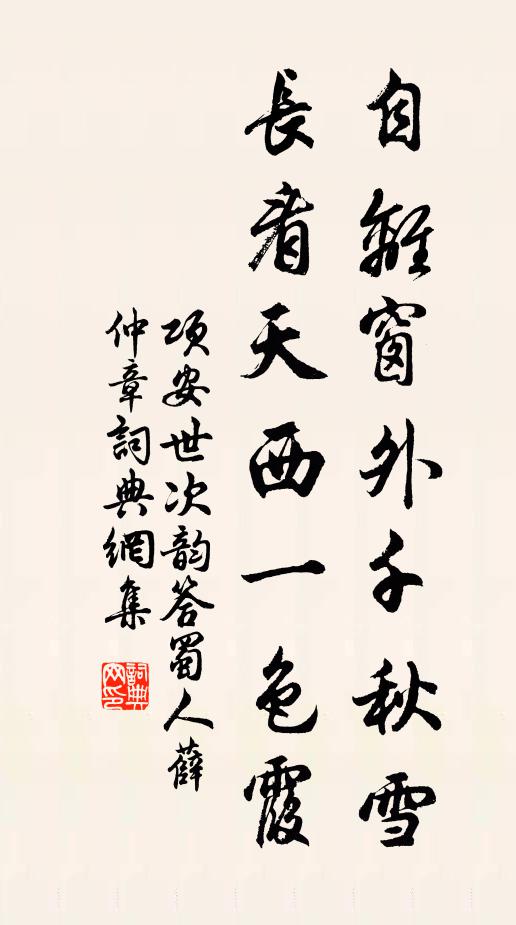 自離窗外千秋雪
長看天西一色霞
項安世次韵答蜀人薛
仲章詞典網集
詞典
网印